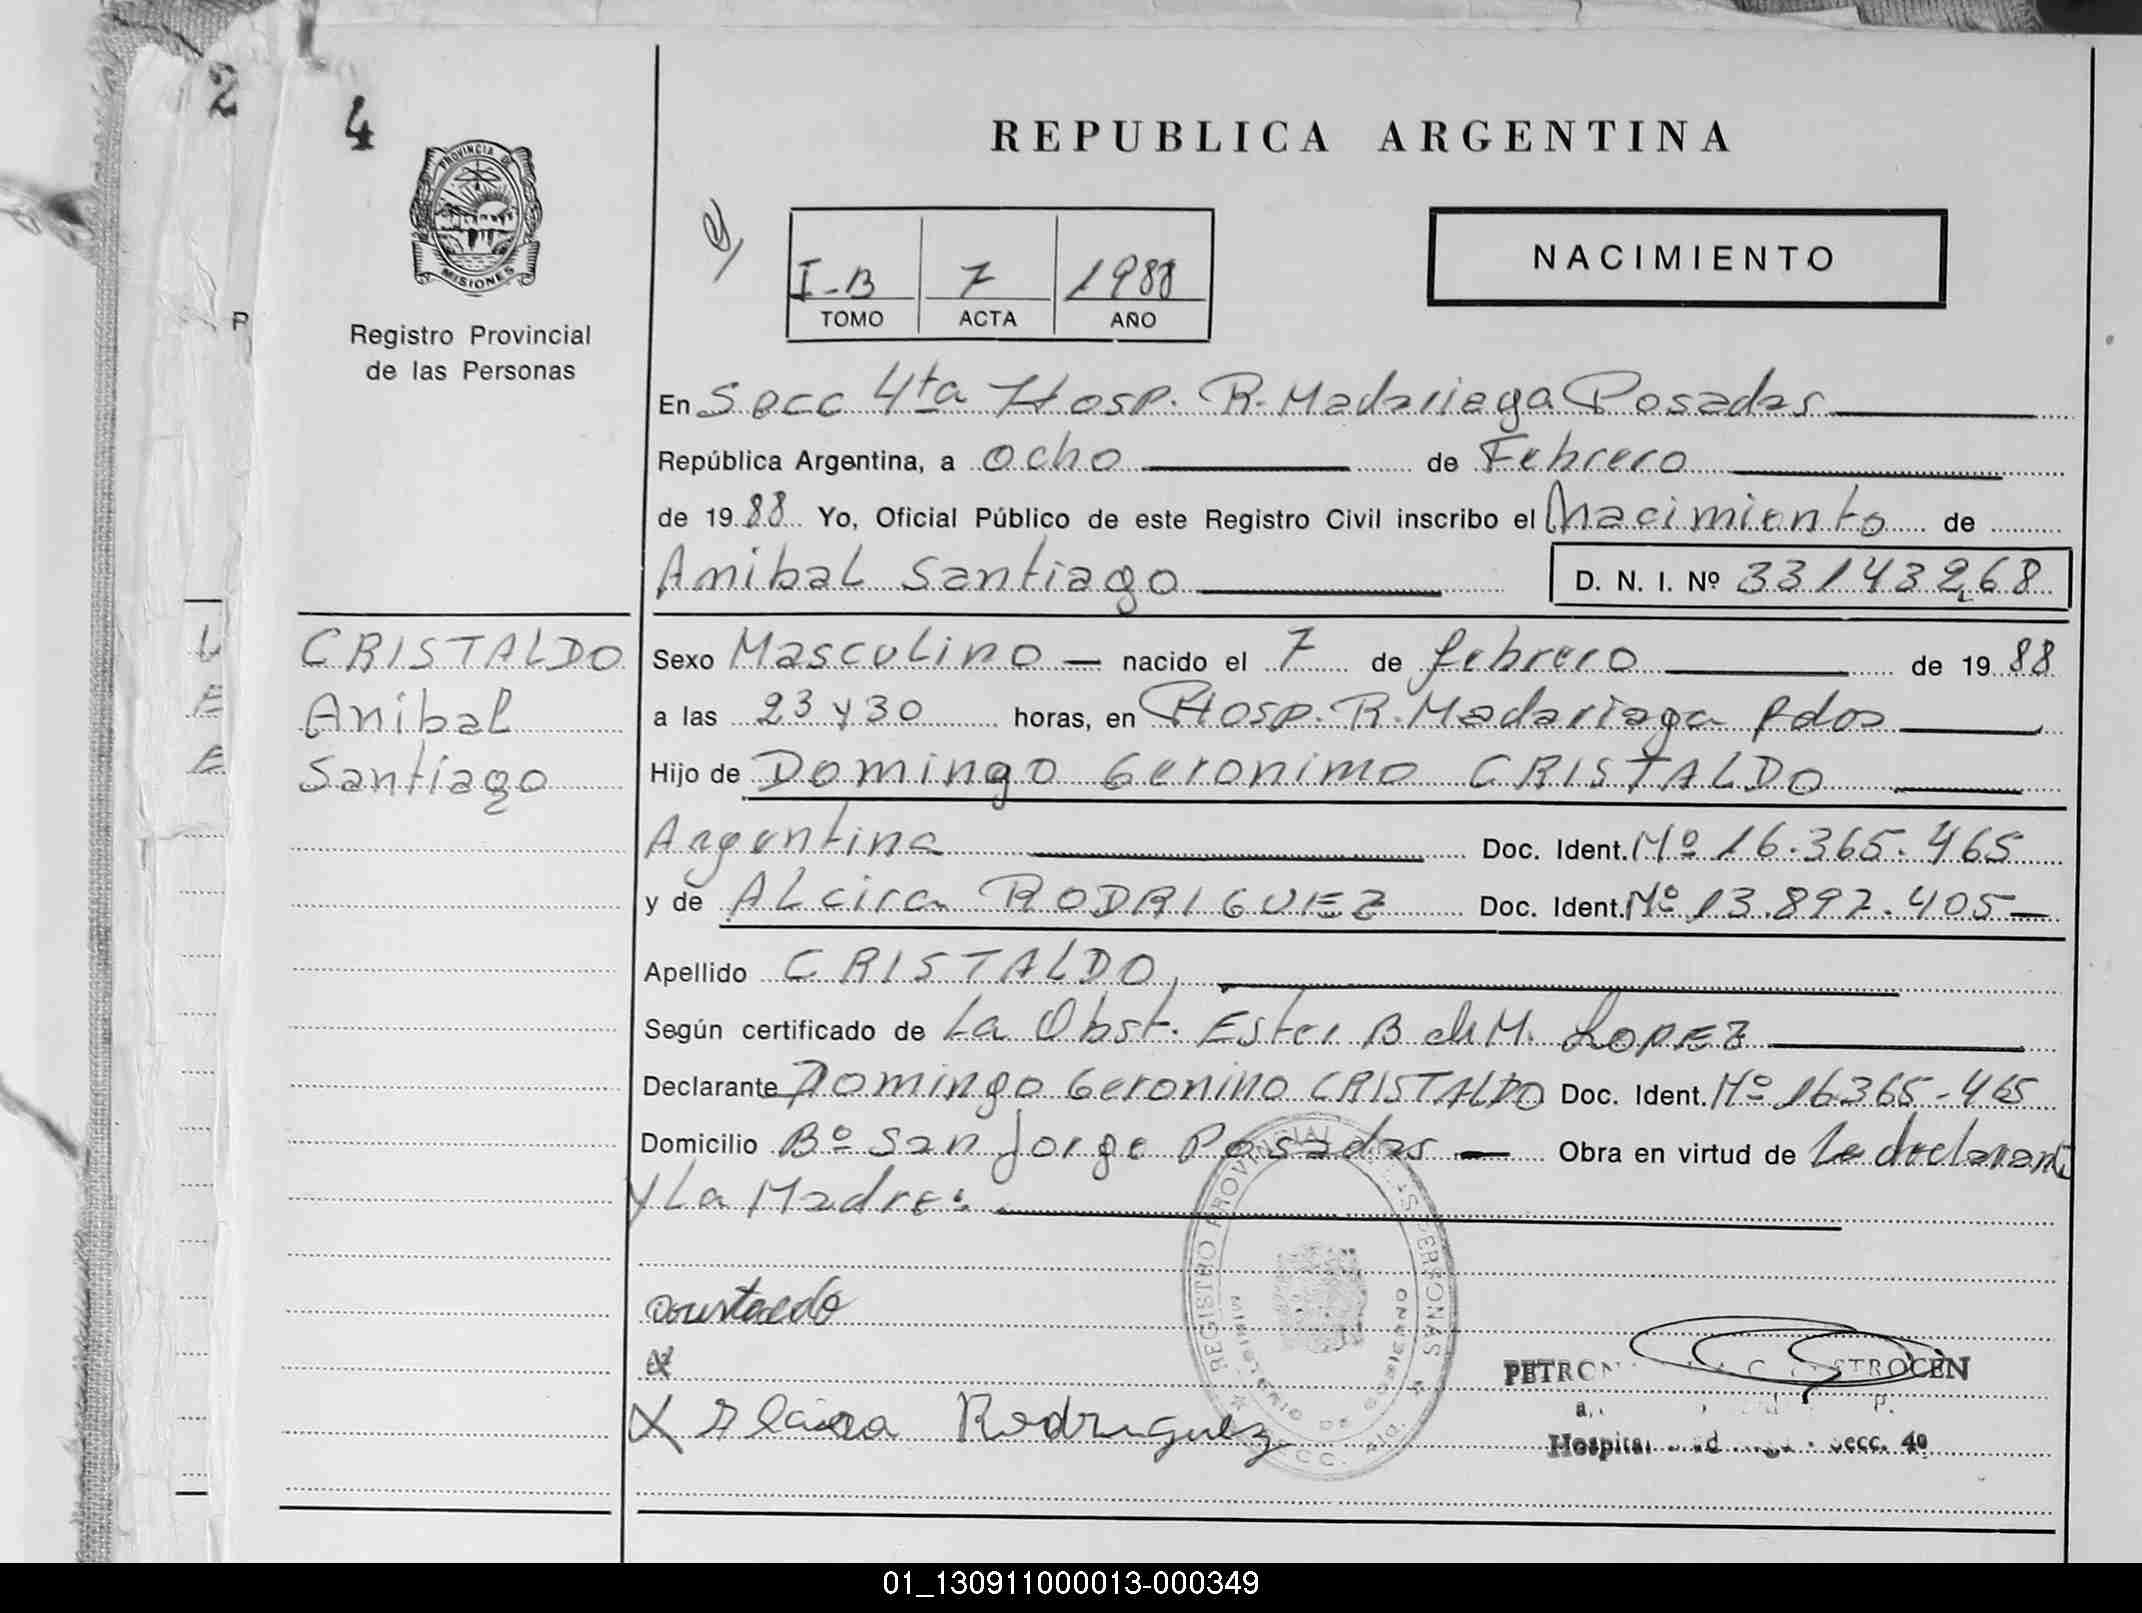 2
4
PROVINCIA DE
MISIONES
Registro Provincial
de las Personas
REPUBLICA ARGENTINA
I-B 7 1988
TOMO ACTA AÑO
NACIMIENTO
En Secc 4ta Hosp. R. Madariaga Posadas
República Argentina, a ocho de Febrero
de 1988 Yo, Oficial Público de este Registro Civil inscribo el Nacimiento de
Anibal Santiago D. N. I. Nº 33143268
CRISTALDO
Anibal
Santiago
Sexo Masculino nacido el 7 de febrero de 1988
a las 23 y 30 horas, en Hosp. R. Madariaga Pdas
Hijo de Domingo Geronimo CRISTALDO
Argentina Doc. Ident. Nº 16.365.465
y de ALcira RODRIGUEZ Doc. Ident. Nº 13.892.405
Apellido CRISTALDO,
Según certificado de La Obst. Ester B de M. LOPEZ
Declarante Domingo Geronimo CRISTALDO Doc. Ident. Nº 16365-465
Domicilio Bº San Jorge Posadas Obra en virtud de La declarante
y La Madre:
REGISTRO PROVINCIAL PERSONAS
x
X Alcira Rodriguez
Hospital Secc. 4a
01_130911000013-000349